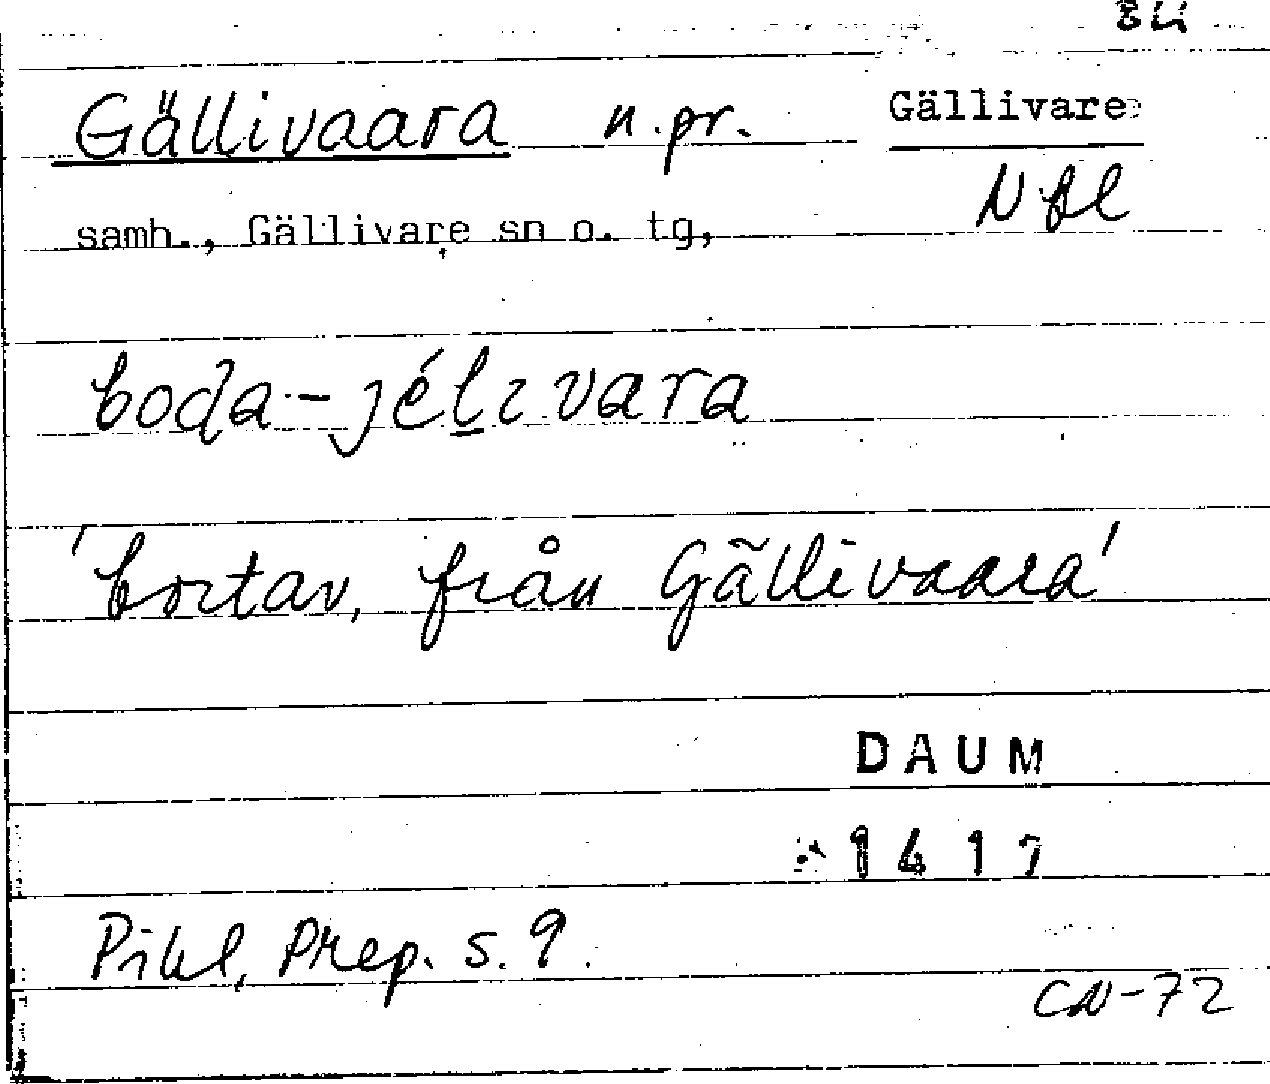 Gällivaara n.pr. Gällivare
Nbl
samh., Gällivare sn o. tg,
boda-jélivara
'bortav, från Gällivaara'
DAUM
1417
Pihl, Prep. s. 9.
CN-72